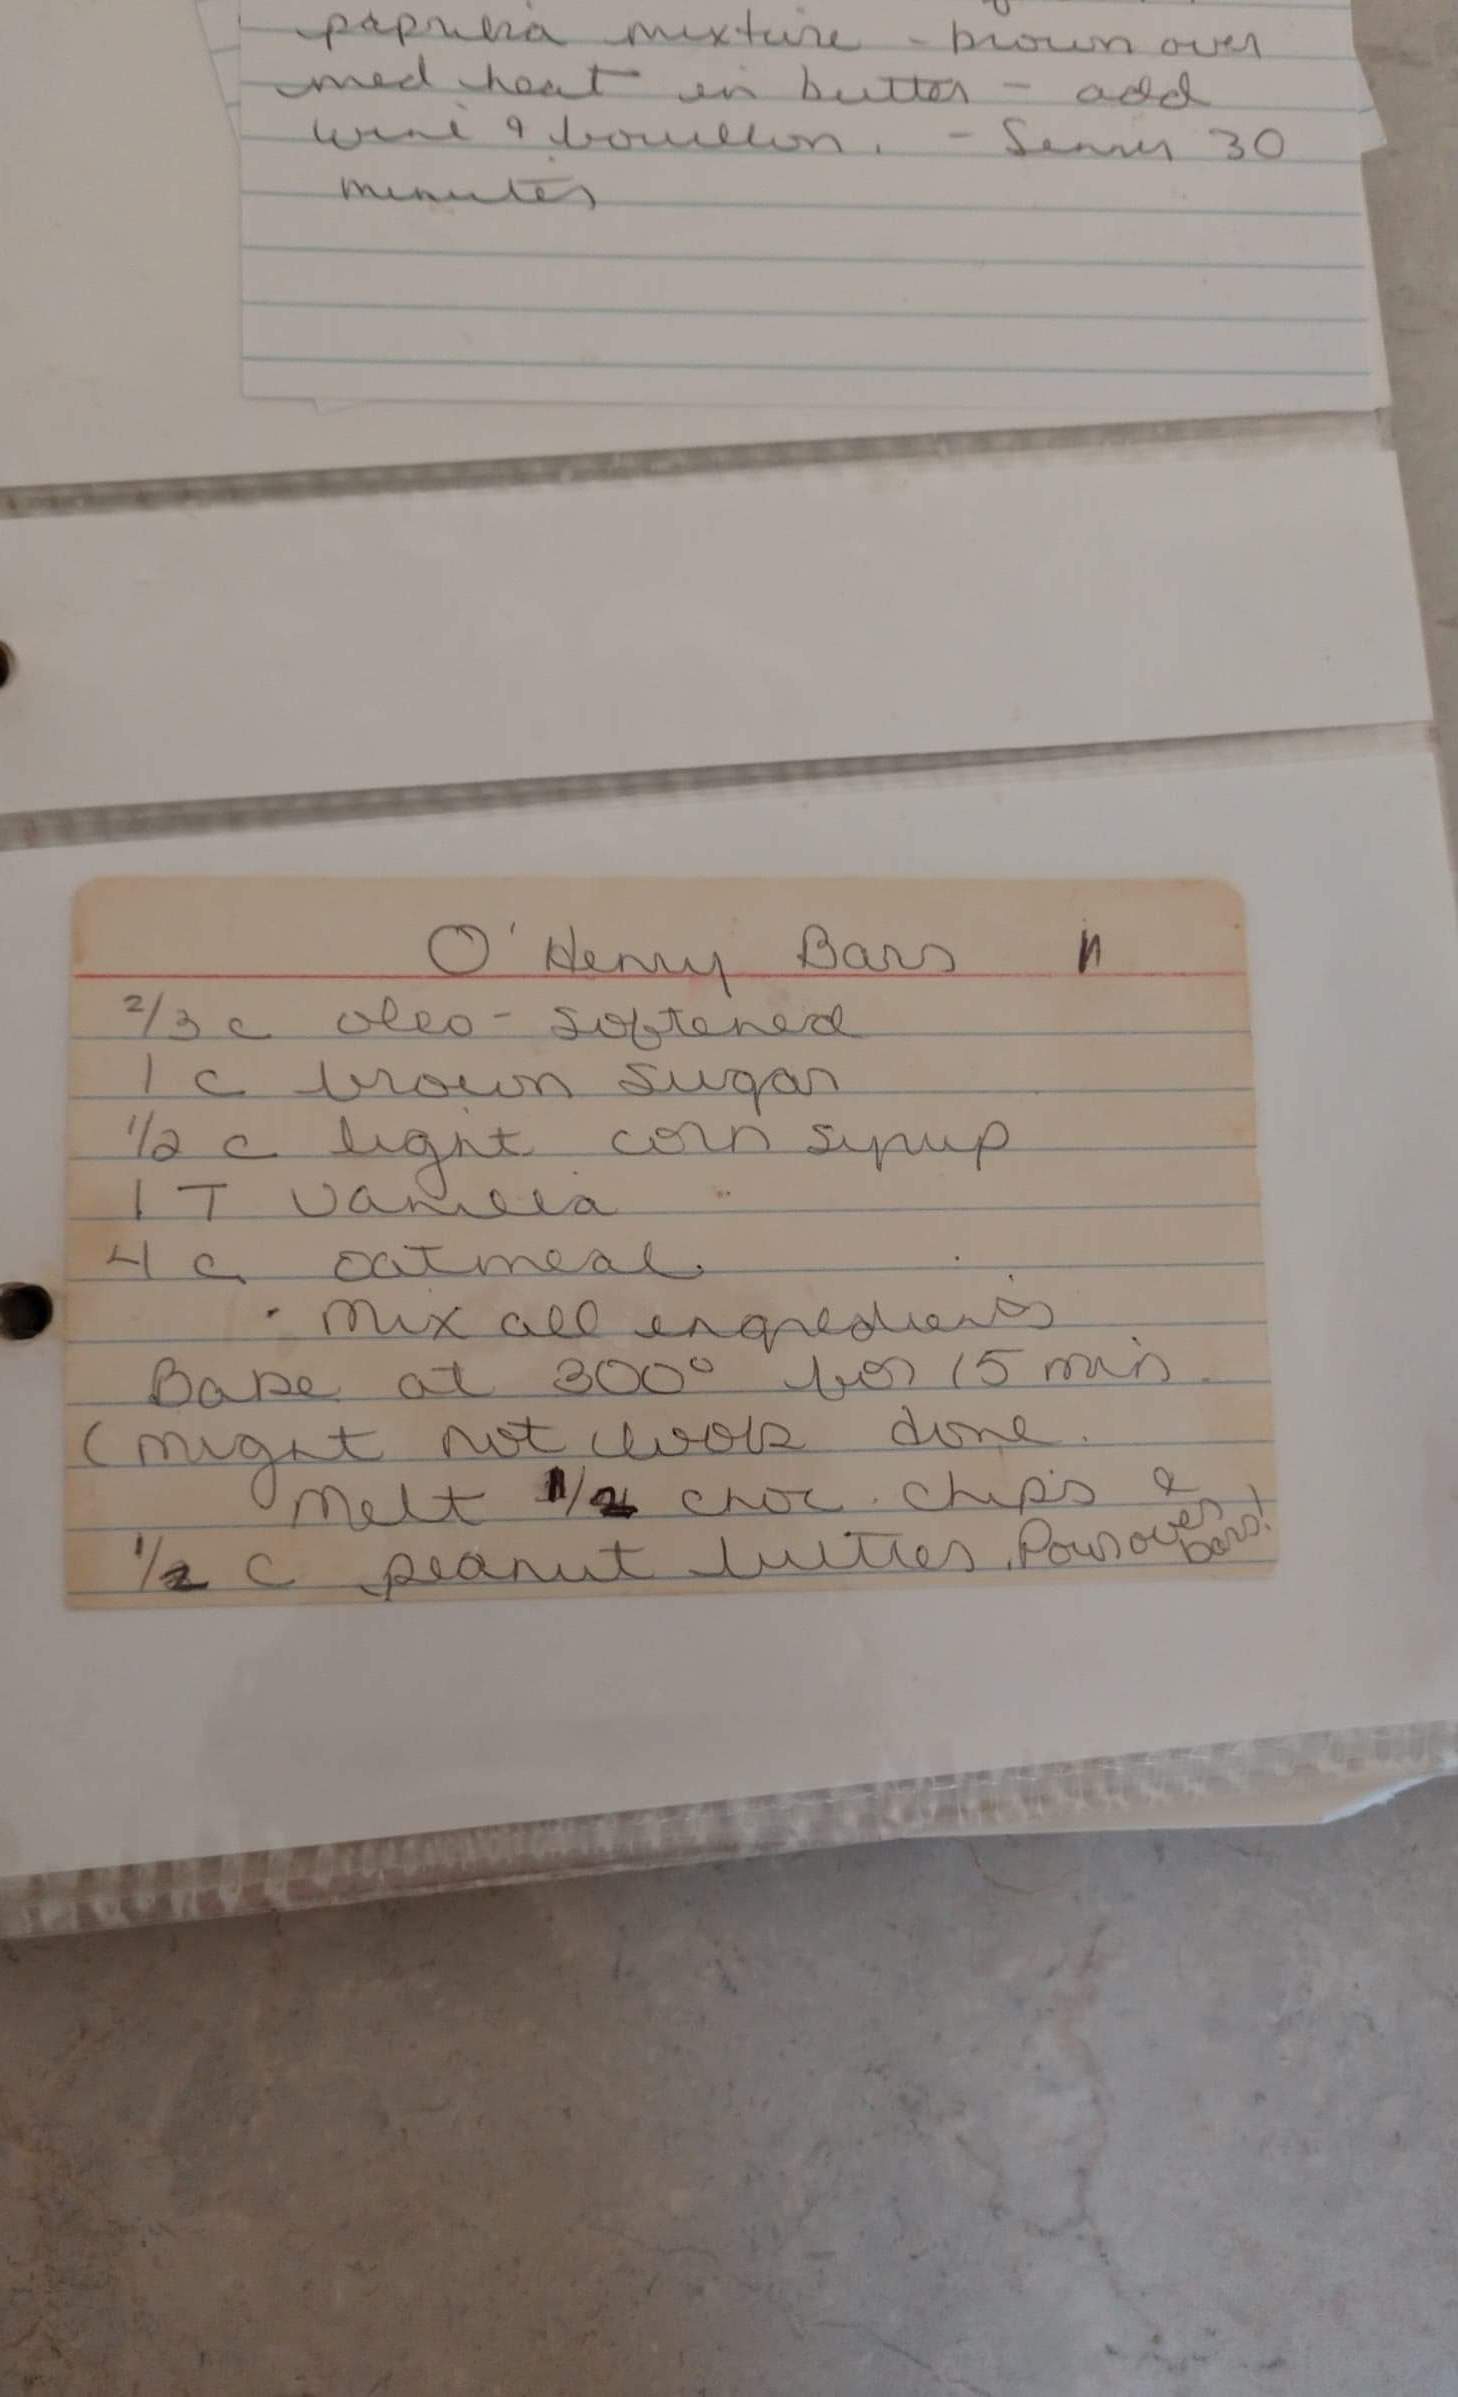 paprika mixture - brown over
med heat in butter - add
wine & bouillon. - Simmer 30
minutes
O'Henry Bars
2/3 c oleo - softened
1 c brown sugar
1/2 c light corn syrup
1 T vanilla
4 c oatmeal
· Mix all ingredients
Bake at 300° for 15 min.
(might not look done.
Melt 1/2 choc. chips &
1/2 c peanut butter. Pour over
bars!